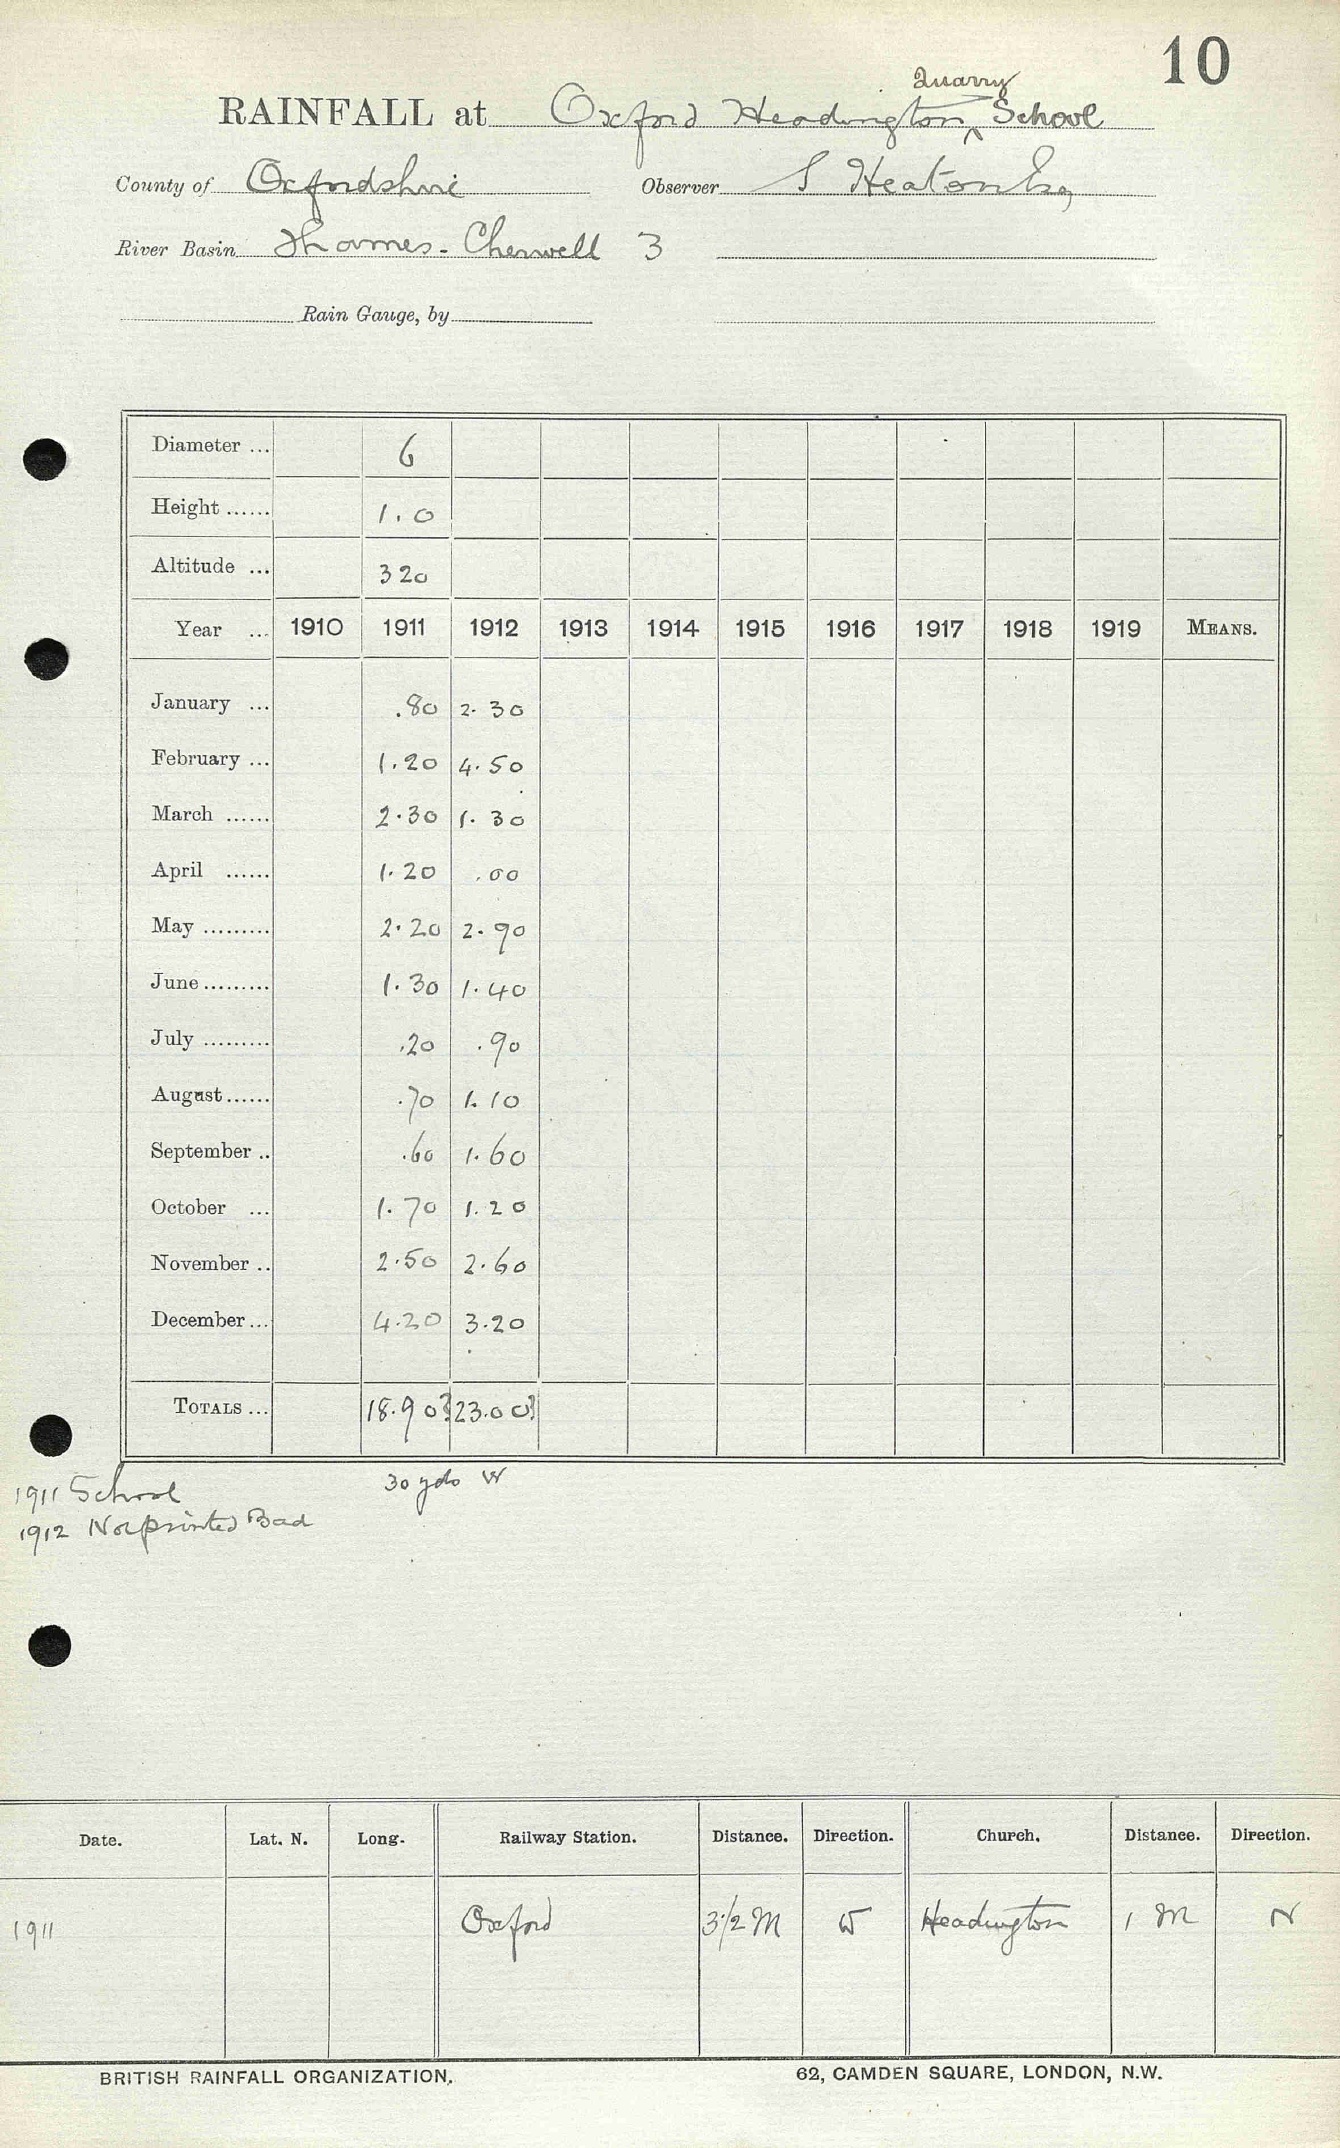 10
Quarry
RAINFALL at Oxford Headington ^ School
County of Oxfordshire Observer S Heaton Esq
River Basin Thames - Cherwell 3
Rain Gauge, by
Diameter ... 6
Height ...... 1.0
Altitude ... 320
Year ... 1910 1911 1912 1913 1914 1915 1916 1917 1918 1919 MEANS.
January ... .80 2.30
February ... 1.20 4.50
March ...... 2.30 1.30
April ...... 1.20 .00
May ......... 2.20 2.90
June ......... 1.30 1.40
July ......... .20 .90
August ...... .70 1.10
September .. .60 1.60
October ... 1.70 1.20
November .. 2.50 2.60
December ... 4.20 3.20
TOTALS ... 18.90? 23.00?
1911 School 30 yds W
1912 Not printed Bad
Date. Lat. N. Long. Railway Station. Distance. Direction. Church. Distance. Direction.
1911 Oxford 3½ M W Headington 1 M N
BRITISH RAINFALL ORGANIZATION. 62, CAMDEN SQUARE, LONDON, N.W.